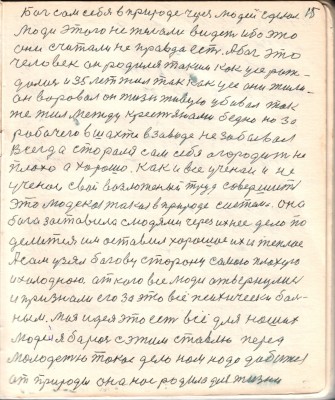 Бог сам себя в природе через людей сделал 15
Люди этого не желали видеть ибо это
они считали не правда есть. А бог это
человек он родился таким как усе рож-
дались и 35 лет жил так как усе они жили
он воровал он жизнь живую убивал так
же жил между крестьянами бедно но за
рабочего в шахте в заводе не забывал
Всегда старался сам себя огородить не
плохо а хорошо. Как и все ученые и не
ученые свой возложеный труд совершить
Это людское такое в природе
бога заставила с людями через ихнее дело по
делится им оставил хорошое их и теплое
А сам узял богову сторону самою плохую
и холодною от кого все люди отвернулися
и признали его за это всё психически бол-
ным. Моя идея это есть всё для наших
людей я борюс с этим ставлю перед
молодежю такое дело нам надо добитися
от природы она нас родила для жизни